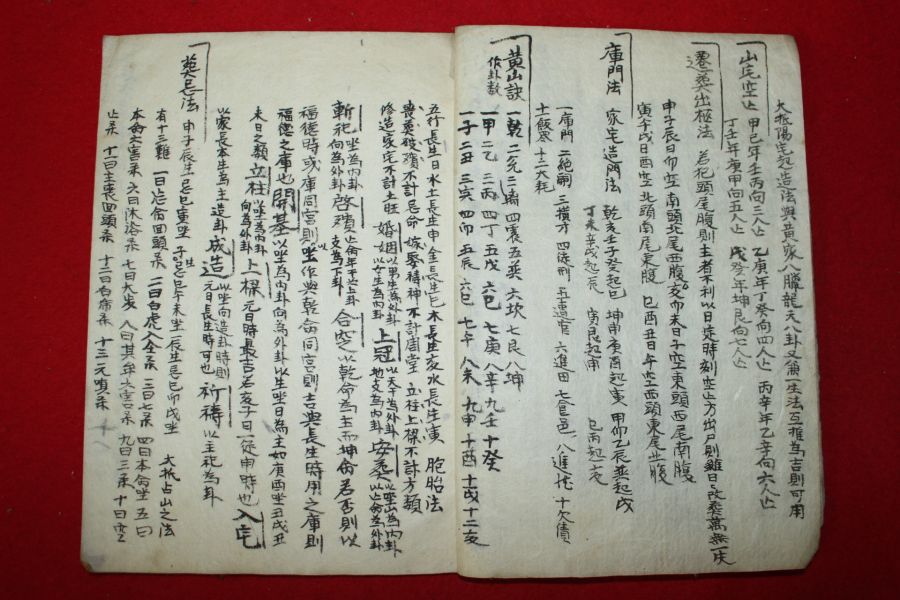 大抵陽宅起造法與黃家八臘龍元八卦又兼一生法互推爲吉則可用
山宅空亡 甲己年壬丙向三人亡 乙庚年丁癸向四人亡 丙辛年乙辛向六人亡
丁壬年庚甲向五人亡 戊癸年坤艮向七人亡
遷葬出柩法 若犯頭尾腹則主者不利以日徒時刻空亡方出戶則雖日日改葬萬無一失
申子辰日卯空南頭北尾西腹 亥卯未日子空東頭西尾南腹
寅午戌日酉空北頭南尾東腹 巳酉丑日午空西頭東尾北腹
庫門法 家宅造門法 乾亥壬子癸起巳 坤申庚酉起寅 甲卯乙辰巽起戌
丁未辛戌起辰 寅艮起申 巳丙起亥
一庫門 二絶嗣 三損才 四徒刑 五遠官 六進田 七食邑 八進 十欠債
士飯寒 十二大耗
黃山訣 作卦數 一乾 二兌 二離 四震 五巽 六坎 七艮 八坤
一甲 二乙 三丙 四丁 五戊 六巳 七庚 八辛 九壬 十癸
一子 二丑 三寅 四卯 五辰 六巳 七午 八未 九申 十酉 十戌 十二亥
五行長生日水土長生申金長生巳木長生亥水長生寅 胞胎法
喪葬破殯不計忌命 嫁娶禱神不計周堂 立柱上樑不計方類
修造家宅不計土旺 婚姻 以男生爲外卦以女生爲內卦 上冠 以天干爲外卦地支爲內卦 安葬 以坐山爲內卦以亡命爲外卦
斬祀 坐爲內卦向爲外卦 啓殯 亡命年干上卦支爲下卦 合窆 以乾命爲主而坤命若否則以
福德時或庫同宮則以坐作與乾命同宮則吉與長生時用之庫則
福德之庫也 開基 以坐爲內卦向爲外卦以生坐日爲主如庚酉坐丑戌丑
未日之類 立柱 以坐爲內卦向爲外卦 上樑 元日時最吉若亥子日一徒申時也 入宅
以家長本生爲主造卦 成造 以坐向造卦時則元日長生時可也 祈禱 以主祀爲卦
葬忌法 申子辰生忌巳寅坐 子生忌巳午未坐 辰生忌巳卯戌坐 大抵占山之法
有十三難 一曰忌命回頭杀 二曰白虎八全杀 三曰七杀 四曰本命坐 五曰
本命六害杀 六曰沐浴杀 七曰大歲 八曰其年六害杀 九曰三杀 十曰空
亡杀 十一曰主喪回頭杀 十二曰白帝杀 十三元嗔杀